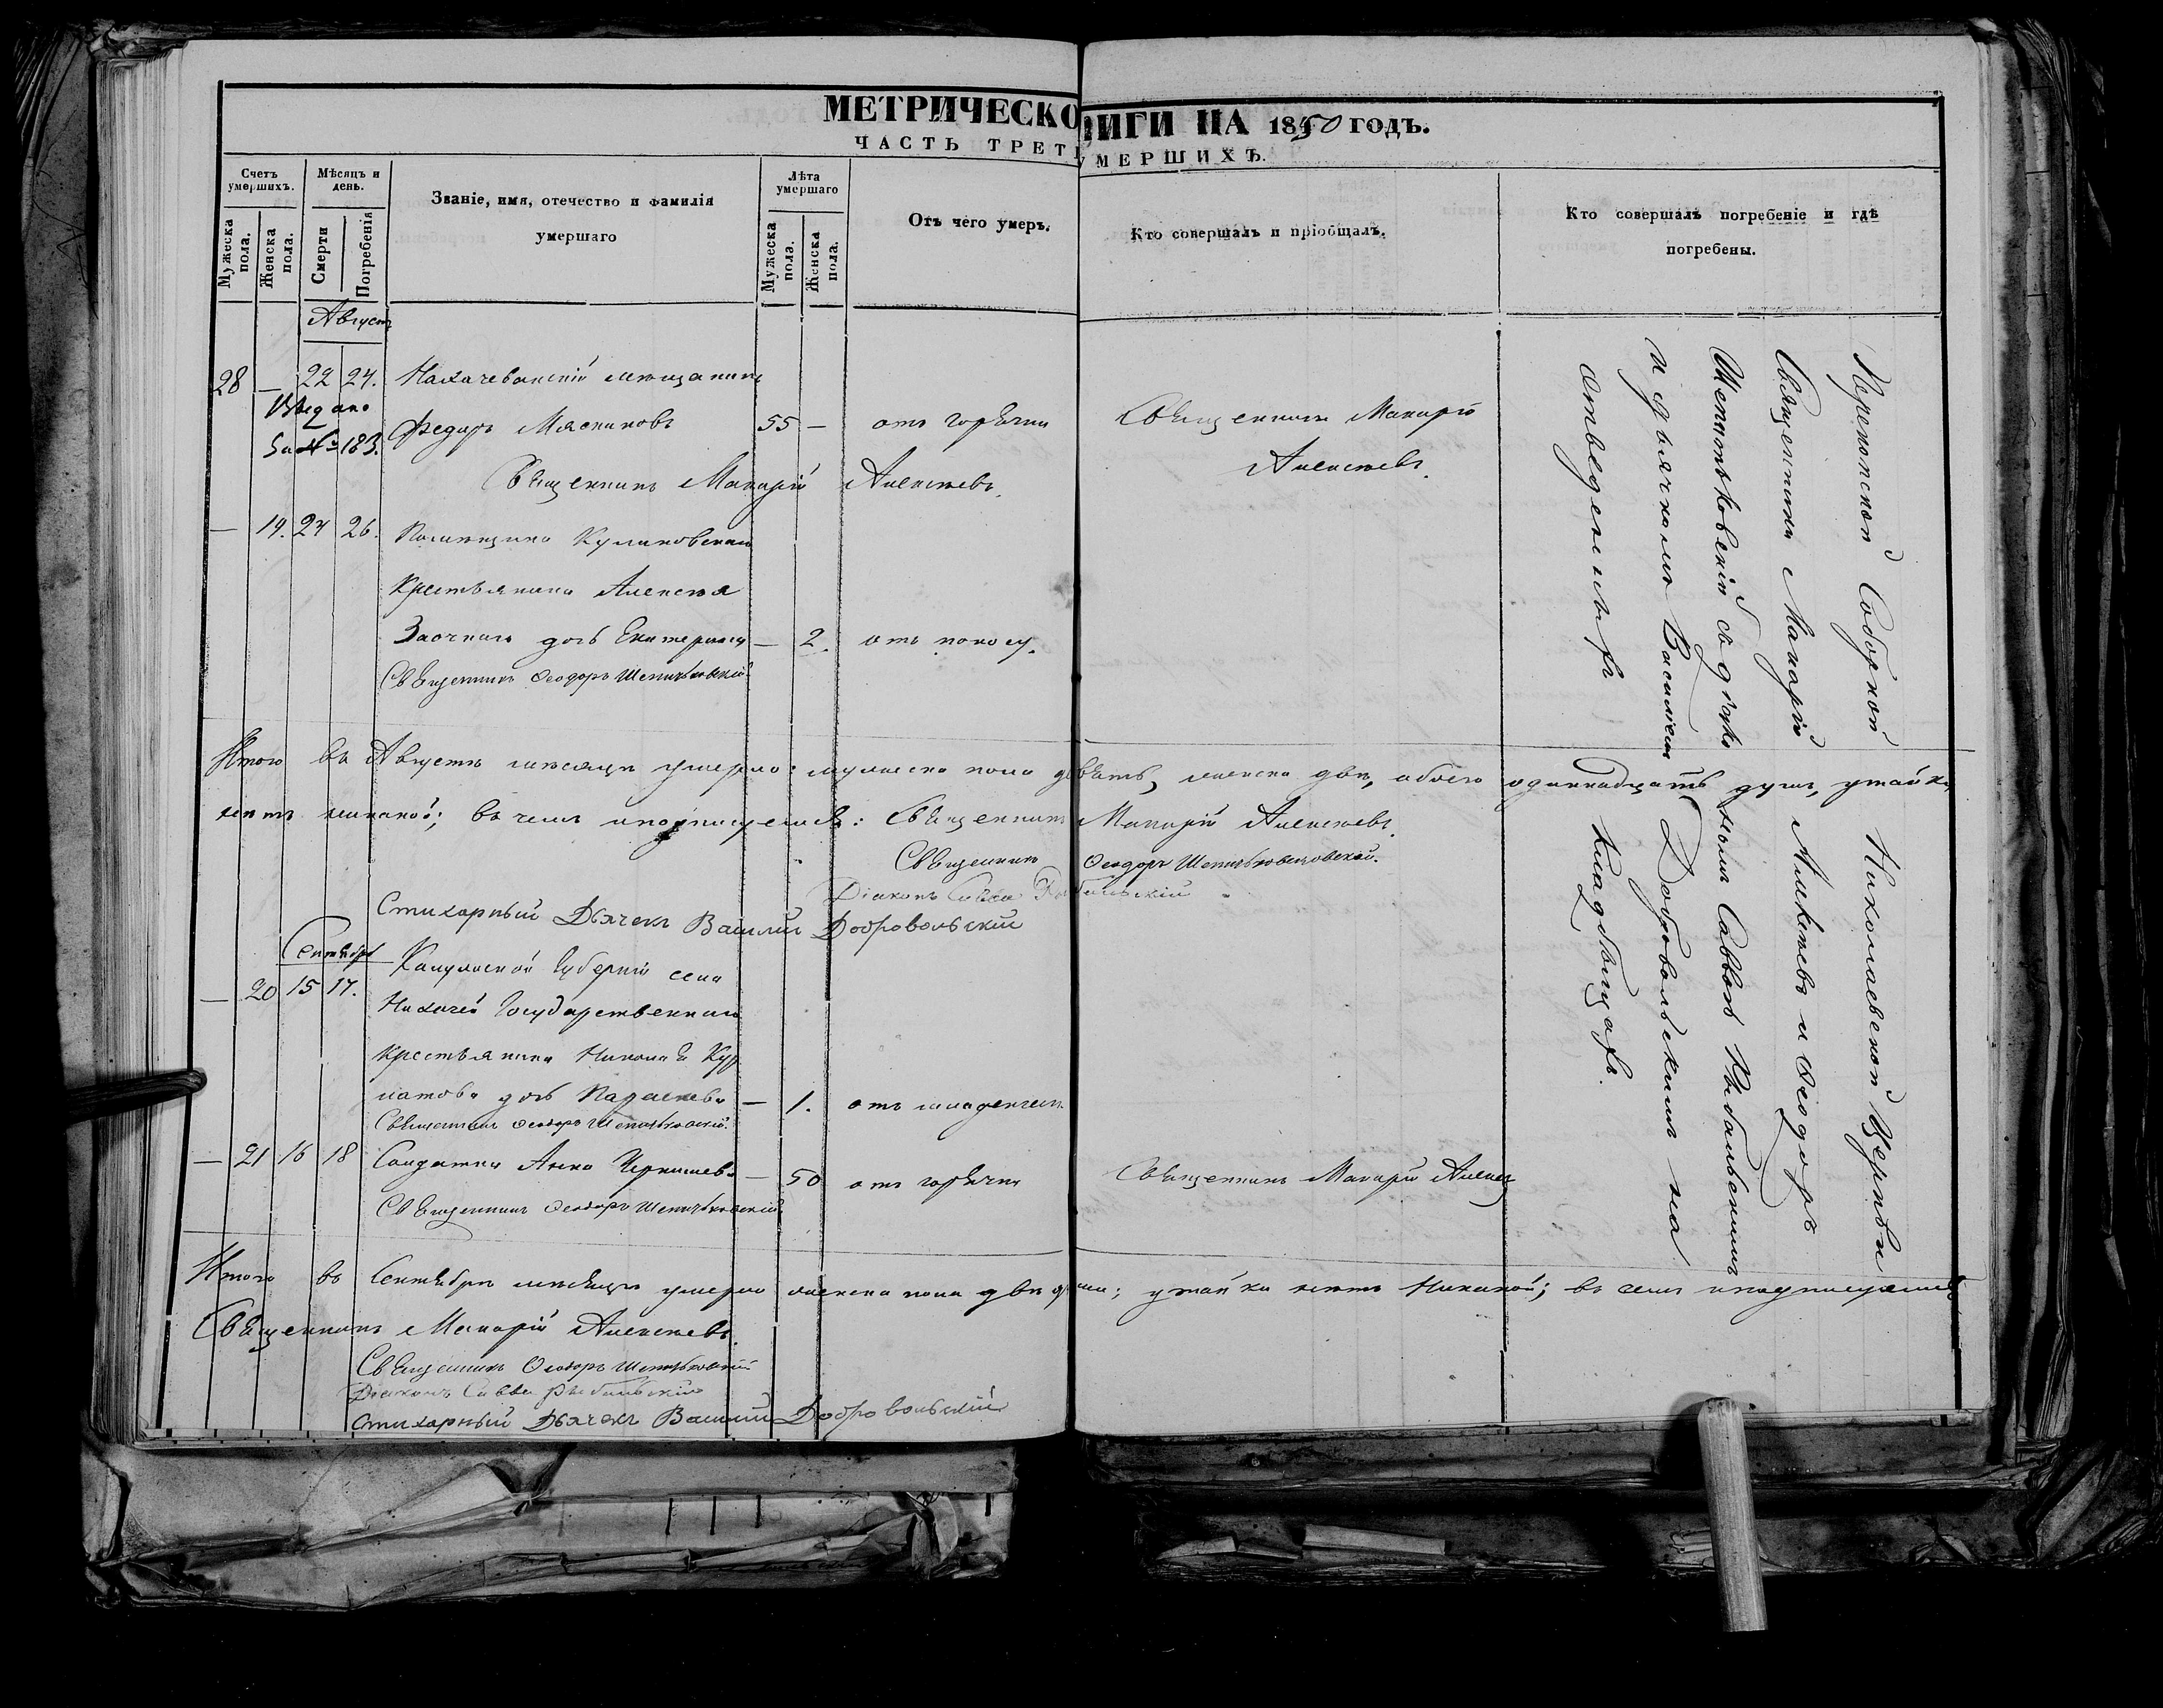 МЕТРИЧЕСКО НИГИ НА 1850 ГОДЪ.
ЧАСТЬ ТРЕТ УМЕРШИХЪ.
Счетъ умершихъ.
Мѣсяцъ и день.
Званіе, имя, отечество и фамилія умершаго
Лѣта умершаго
Отъ чего умеръ.
Кто совершалъ и пріобщалъ.
Кто совершалъ погребеніе и гдѣ погребены.
Мужеска пола.
Женска пола.
Смерти
Погребенія
Мужеска пола.
Женска пола.
Августъ
28 — 22 24. Нахичеванскій мещанинъ
Выдано
За № 183.
Федоръ Мясниковъ 55 — отъ горячки Священникъ Макарій
Алексѣевъ.
Священникъ Макарій Алексѣевъ.
— 19. 24 26. Помѣщика Куликовскаго
Крестьянина Алексѣя
дочь Екатерина — 2. отъ поносу.
Священникъ Ѳеодоръ
Итого въ Августѣ мѣсяцѣ умерло: мужеска пола девять, женска двѣ, обоего одиннадцать душъ, утайки
нѣтъ никакой; въ чемъ и подписуемся: Священникъ Макарій Алексѣевъ.
Священникъ Ѳеодоръ
Діаконъ Савва
Стихарный Дьячекъ Василій Добровольский
Сентябрь
— 20 15 17. Калужской Губерніи села
Государственнаго
Крестьянина Николая
дочь Параскева — 1. отъ младенческ.
Священникъ Ѳеодоръ
— 21 16 18 Солдатка Анна — 50 отъ горячки Священникъ Макарій Алексѣ
Священникъ Ѳеодоръ
Итого въ Сентябрѣ мѣсяцѣ умерло женска пола двѣ души; утайки нѣтъ никакой; въ чемъ и подписуемся
Священникъ Макарій Алексѣевъ.
Священникъ Ѳеодоръ
Діаконъ Савва
Стихарный Дьячекъ Василий Добровольский
Перекопской Соборной Николаевской Церкви
Священники Макарій Алексѣевъ и Ѳеодоръ
съ діако номъ Саввою
и дьячкомъ Василіемъ Добровольскимъ на
отведенныхъ кладбищахъ.